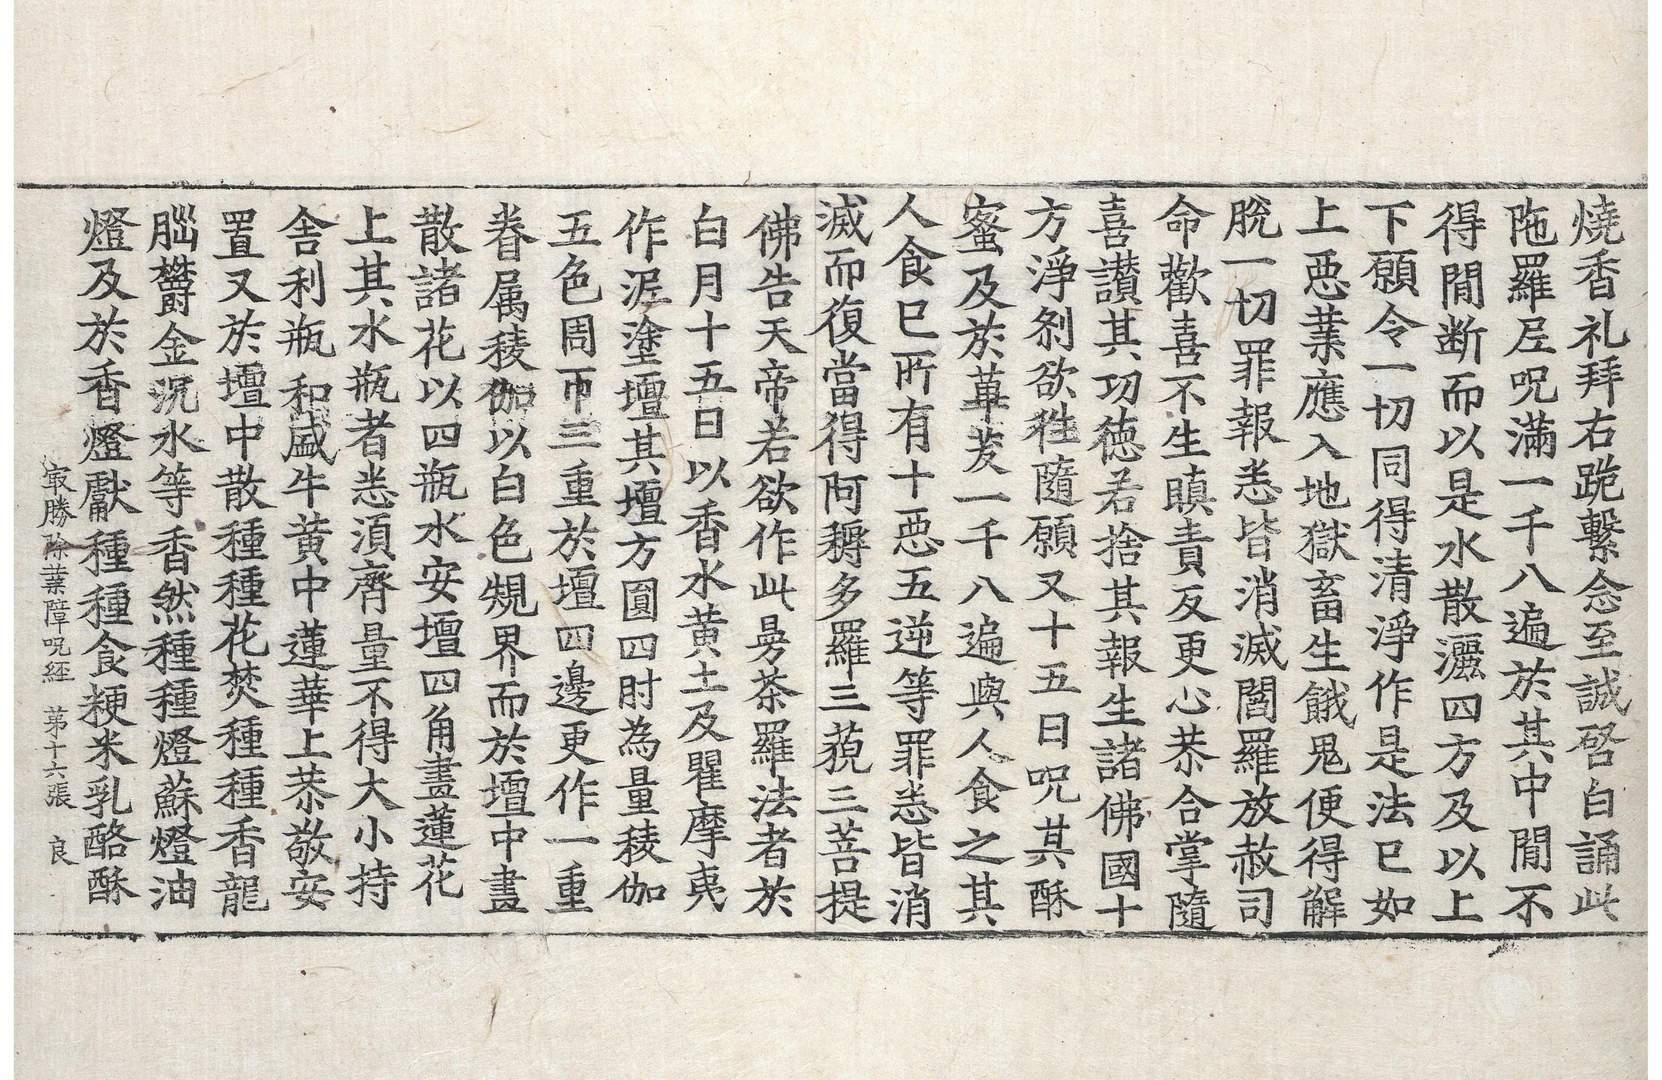 燒香礼拜右跪繫念至誠啓白誦此
陁羅尼呪滿一千八遍於其中閒不
得閒断而以是水散灑四方及以上
下願令一切同得清淨作是法已如
上惡業應入地獄畜生餓鬼便得解
脫一切罪報悉皆消滅閻羅放赦司
命歡喜不生瞋責反更心恭合掌隨
喜讃其功德若捨其報生諸佛國十
方淨刹欲往隨願又十五日呪其酥
蜜及於蓽茇一千八遍與人食之其
人食已所有十惡五逆等罪悉皆消
滅而復當得阿耨多羅三藐三菩提
佛告天帝若欲作此曼荼羅法者於
白月十五日以香水黃土及瞿摩夷
作泥塗壇其壇方圓四肘為量稜伽
五色周帀三重於壇四邊更作一重
眷属稜伽以白色規界而於壇中畫
散諸花以四瓶水安壇四角畫蓮花
上其水瓶者悉須齊量不得大小持
舍利瓶和盛牛黃中蓮華上恭敬安
置又於壇中散種種花焚種種香龍
𦛁欝金沉水等香然種種燈蘇燈油
燈及於香燈獻種種食粳米乳酪酥
最勝除業障呪經 第十六張 良